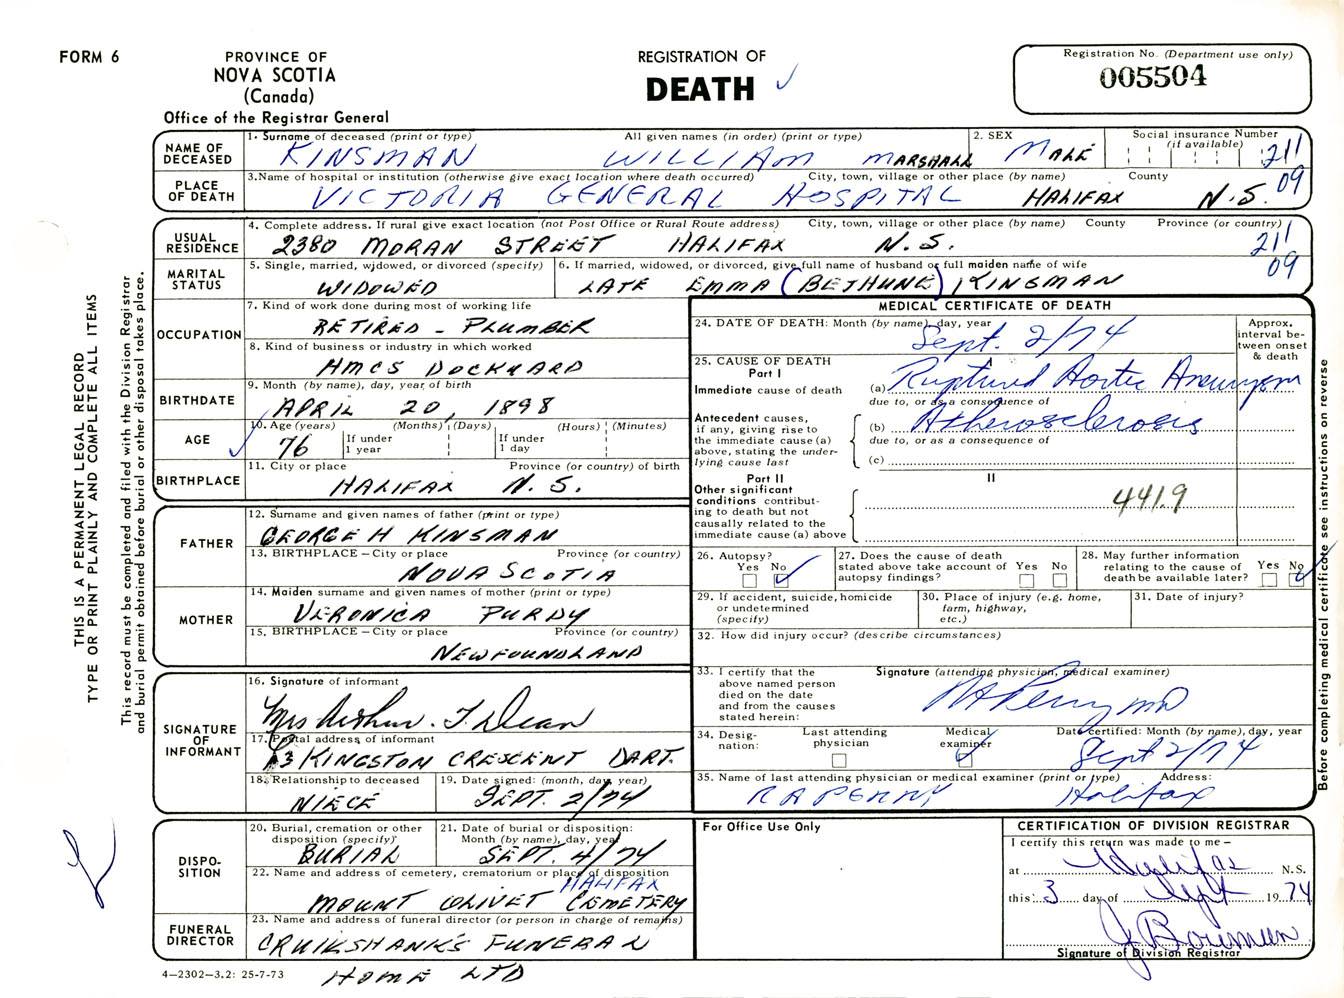 FORM 6
PROVINCE OF
NOVA SCOTIA
(Canada)
Office of the Registrar General
REGISTRATION OF
DEATH
Registration No. (Department use only)
005504
THIS IS A PERMANENT LEGAL RECORD
TYPE OR PRINT PLAINLY AND COMPLETE ALL ITEMS
This record must be completed and filed with the Division Registrar
and burial permit obtained before burial or other disposal takes place.
NAME OF
DECEASED
1. Surname of deceased (print or type) All given names (in order) (print or type)
KINSMAN WILLIAM MARSHALL
2. SEX
MALE
Social insurance Number
(if available)
211
09
PLACE
OF DEATH
3. Name of hospital or institution (otherwise give exact location where death occurred) City, town, village or other place (by name) County
VICTORIA GENERAL HOSPITAL HALIFAX N.S.
USUAL
RESIDENCE
4. Complete address. If rural give exact location (not Post Office or Rural Route address) City, town, village or other place (by name) County Province (or country)
2380 MORAN STREET HALIFAX N.S.
211
09
MARITAL
STATUS
5. Single, married, widowed, or divorced (specify)
WIDOWED
6. If married, widowed, or divorced, give full name of husband or full maiden name of wife
LATE EMMA (BETHUNE) KINSMAN
OCCUPATION
7. Kind of work done during most of working life
RETIRED - PLUMBER
8. Kind of business or industry in which worked
HMCS DOCKYARD
BIRTHDATE
9. Month (by name), day, year of birth
APRIL 20, 1898
AGE
10. Age (years) (Months) (Days) (Hours) (Minutes)
76
If under
1 year
If under
1 day
BIRTHPLACE
11. City or place Province (or country) of birth
HALIFAX N.S.
FATHER
12. Surname and given names of father (print or type)
GEORGE H KINSMAN
13. BIRTHPLACE — City or place Province (or country)
NOVA SCOTIA
MOTHER
14. Maiden surname and given names of mother (print or type)
VERONICA PURDY
15. BIRTHPLACE — City or place Province (or country)
NEWFOUNDLAND
SIGNATURE
OF
INFORMANT
16. Signature of informant
Mrs Arthur. J. Dean
17. Postal address of informant
3 KINGSTON CRESCENT DART.
18. Relationship to deceased
NIECE
19. Date signed: (month, day, year)
SEPT. 2/74
DISPO-
SITION
20. Burial, cremation or other
disposition (specify)
BURIAL
21. Date of burial or disposition:
Month (by name), day, year
SEPT. 4/74
22. Name and address of cemetery, crematorium or place of disposition
HALIFAX
MOUNT OLIVET CEMETERY
FUNERAL
DIRECTOR
23. Name and address of funeral director (or person in charge of remains)
CRUIKSHANK'S FUNERAL
HOME LTD
4—2302—3.2: 25-7-73
MEDICAL CERTIFICATE OF DEATH
24. DATE OF DEATH: Month (by name), day, year
Sept. 2/74
Approx.
interval be-
tween onset
& death
25. CAUSE OF DEATH
Part I
Immediate cause of death
(a) Ruptured Aortic Aneurysm
due to, or as a consequence of
Antecedent causes,
if any, giving rise to
the immediate cause (a)
above, stating the under-
lying cause last
(b) Atherosclerosis
due to, or as a consequence of
(c)
Part II
II
Other significant
conditions contribut-
ing to death but not
causally related to the
immediate cause (a) above
441.9
26. Autopsy?
Yes No
27. Does the cause of death
stated above take account of
autopsy findings?
Yes No
28. May further information
relating to the cause of
death be available later?
Yes No
29. If accident, suicide, homicide
or undetermined
(specify)
30. Place of injury (e.g. home,
farm, highway,
etc.)
31. Date of injury?
32. How did injury occur? (describe circumstances)
33. I certify that the
above named person
died on the date
and from the causes
stated herein:
Signature (attending physician, medical examiner)
RA Perry MD
34. Desig-
nation:
Last attending
physician
Medical
examiner
Date certified: Month (by name), day, year
Sept 2/74
35. Name of last attending physician or medical examiner (print or type) Address:
RA PERRY Halifax
For Office Use Only
CERTIFICATION OF DIVISION REGISTRAR
I certify this return was made to me —
at Halifax N.S.
this 3 day of Sept 1974
J Bowmen
Signature of Division Registrar
Before completing medical certificate see instructions on reverse